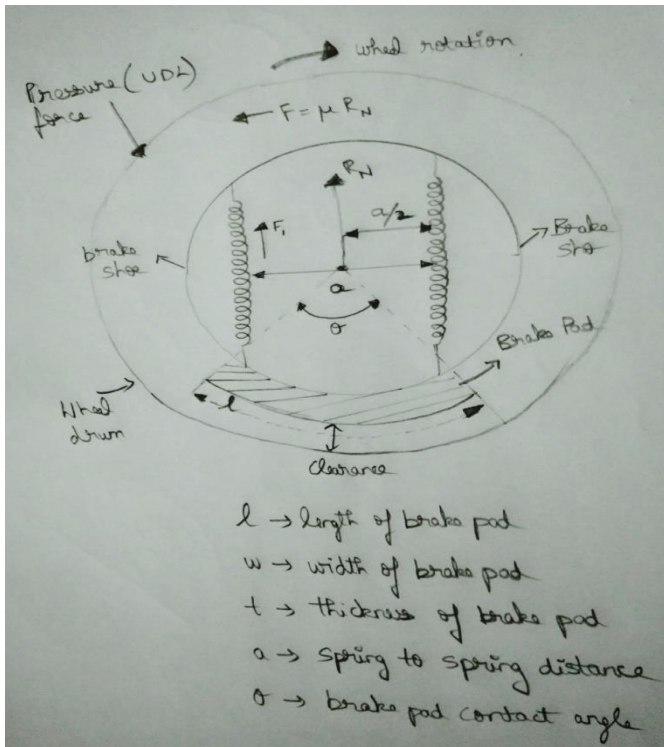 wheel rotation.
Pressure (UDL)
force
F = μ RN
RN
a/2
F1
brake
shoe
Brake
shoe
a
θ
Brake Pad
Wheel
drum
l
Clearance
l → length of brake pad
w → width of brake pad
t → thickness of brake pad
a → spring to spring distance
θ → brake pad contact angle